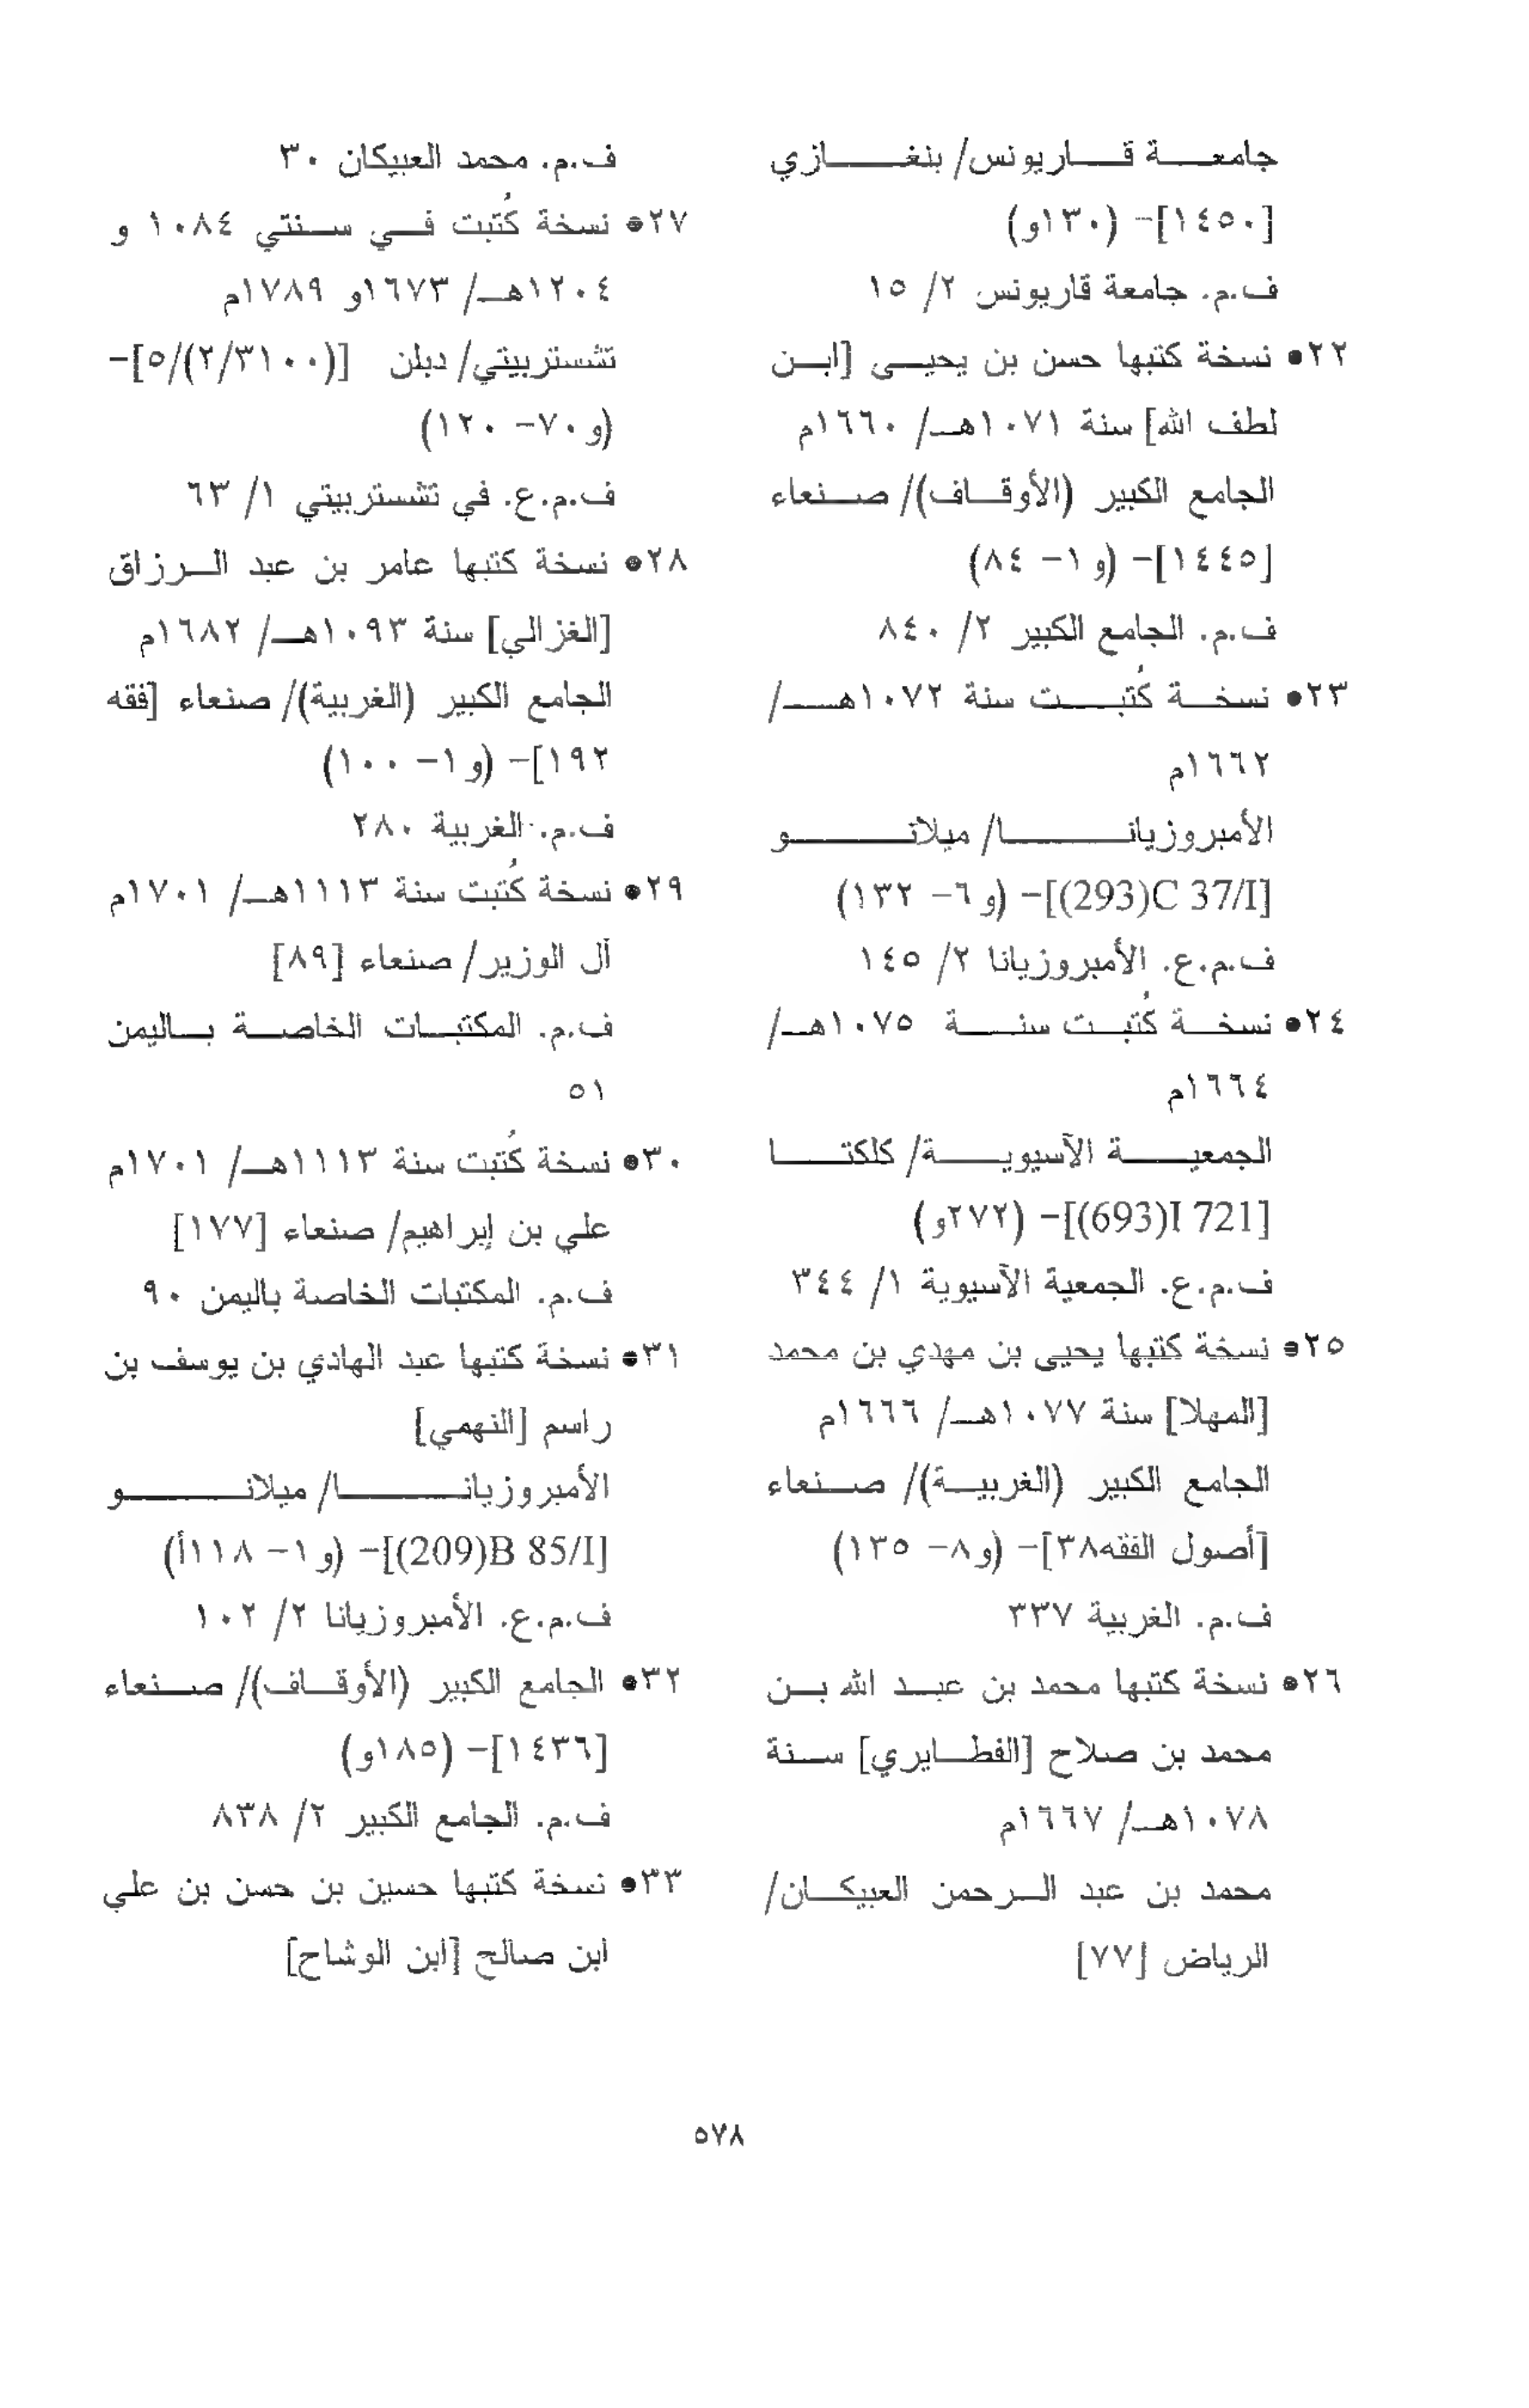 جامعة قاريونس/ بنغازي
[١٤٥٠]- (١٣٠و)
ف.م. جامعة قاريونس ٢/ ١٥
٢٢• نسخة كتبها حسن بن يحيى [ابن
لطف الله] سنة ١٠٧١هـ/ ١٦٦٠م
الجامع الكبير (الأوقاف)/ صنعاء
[١٤٤٥]- (و١- ٨٤)
ف.م. الجامع الكبير ٢/ ٨٤٠
٢٣• نسخة كُتبت سنة ١٠٧٢هـ/
١٦٦٢م
الأمبروزيانا/ ميلانو
[293)C 37/I)]- (و٦- ١٣٢)
ف.م.ع. الأمبروزيانا ٢/ ١٤٥
٢٤• نسخة كُتبت سنة ١٠٧٥هـ/
١٦٦٤م
الجمعية الآسيوية/ كلكتا
[693)I 721)]- (٢٧٢و)
ف.م.ع. الجمعية الآسيوية ١/ ٣٤٤
٢٥• نسخة كتبها يحيى بن مهدي بن محمد
[المهلا] سنة ١٠٧٧هـ/ ١٦٦٦م
الجامع الكبير (الغربية)/ صنعاء
[أصول الفقه٣٨]- (و٨- ١٣٥)
ف.م. الغربية ٣٣٧
٢٦• نسخة كتبها محمد بن عبد الله بن
محمد بن صلاح [الفطايري] سنة
١٠٧٨هـ/ ١٦٦٧م
محمد بن عبد الرحمن العبيكان/
الرياض [٧٧]
ف.م. محمد العبيكان ٣٠
٢٧• نسخة كُتبت في سنتي ١٠٨٤ و
١٢٠٤هـ/ ١٦٧٣و ١٧٨٩م
تشستربيتي/ دبلن [(٢/٣١٠٠)/٥]-
(و٧٠- ١٢٠)
ف.م.ع. في تشستربيتي ١/ ٦٣
٢٨• نسخة كتبها عامر بن عبد الرزاق
[الغزالي] سنة ١٠٩٣هـ/ ١٦٨٢م
الجامع الكبير (الغربية)/ صنعاء [فقه
١٩٢]- (و١- ١٠٠)
ف.م. الغربية ٢٨٠
٢٩• نسخة كُتبت سنة ١١١٣هـ/ ١٧٠١م
آل الوزير/ صنعاء [٨٩]
ف.م. المكتبات الخاصة باليمن
٥١
٣٠• نسخة كُتبت سنة ١١١٣هـ/ ١٧٠١م
علي بن إبراهيم/ صنعاء [١٧٧]
ف.م. المكتبات الخاصة باليمن ٩٠
٣١• نسخة كتبها عبد الهادي بن يوسف بن
راسم [النهمي]
الأمبروزيانا/ ميلانو
[209)B 85/I)]- (و١- ١١٨أ)
ف.م.ع. الأمبروزيانا ٢/ ١٠٢
٣٢• الجامع الكبير (الأوقاف)/ صنعاء
[١٤٣٦]- (١٨٥و)
ف.م. الجامع الكبير ٢/ ٨٣٨
٣٣• نسخة كتبها حسين بن حسن بن علي
ابن صالح [ابن الوشاح]
٥٧٨